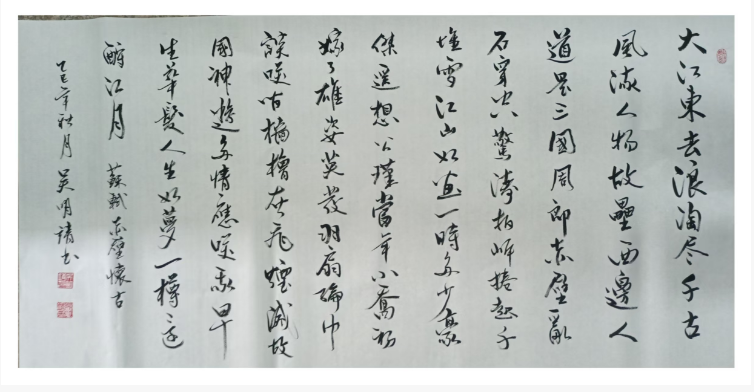 大江東去浪淘尽千古
風流人物故壘西邊人
道是三國周郎赤壁亂
石穿空驚濤拍岸捲起千
堆雪江山如画一時多少豪
傑遥想公瑾當年小喬初
嫁了雄姿英發羽扇綸巾
談咲间檣櫓灰飛煙滅故
國神遊多情應咲我早
生華髮人生如夢一樽還
酹江月 蘇軾 赤壁懷古
乙巳年秋月 吴明书